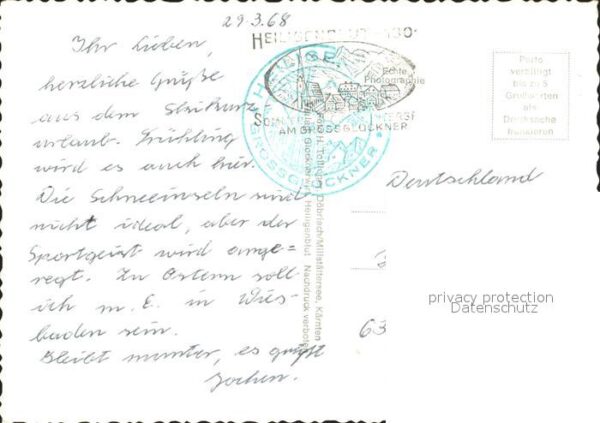 29.3.68
Ihr Lieben,
herzliche Grüße
aus dem Skikurz-
urlaub. Frühling
wird es auch hier.
Die Schneeinseln sind
nicht ideal, aber der
Sportgeist wird ange=
regt. Zu Ostern soll
ich m. E. in Wies-
baden sein.
Bleibt munter, es grüßt
Jochen.
HEILIGENBLUT
AM GROSSGLOCKNER
HEILIGE
GROSSGLOCKNER
Echte
Photographie
Döbriach/Millstättersee, Kärnten
Heiligenblut Nachdruck verboten
Porto
verbilligt
bis zu 5
Grußworten
als
Drucksache
frankieren
Deutschland
63
privacy protection
Datenschutz